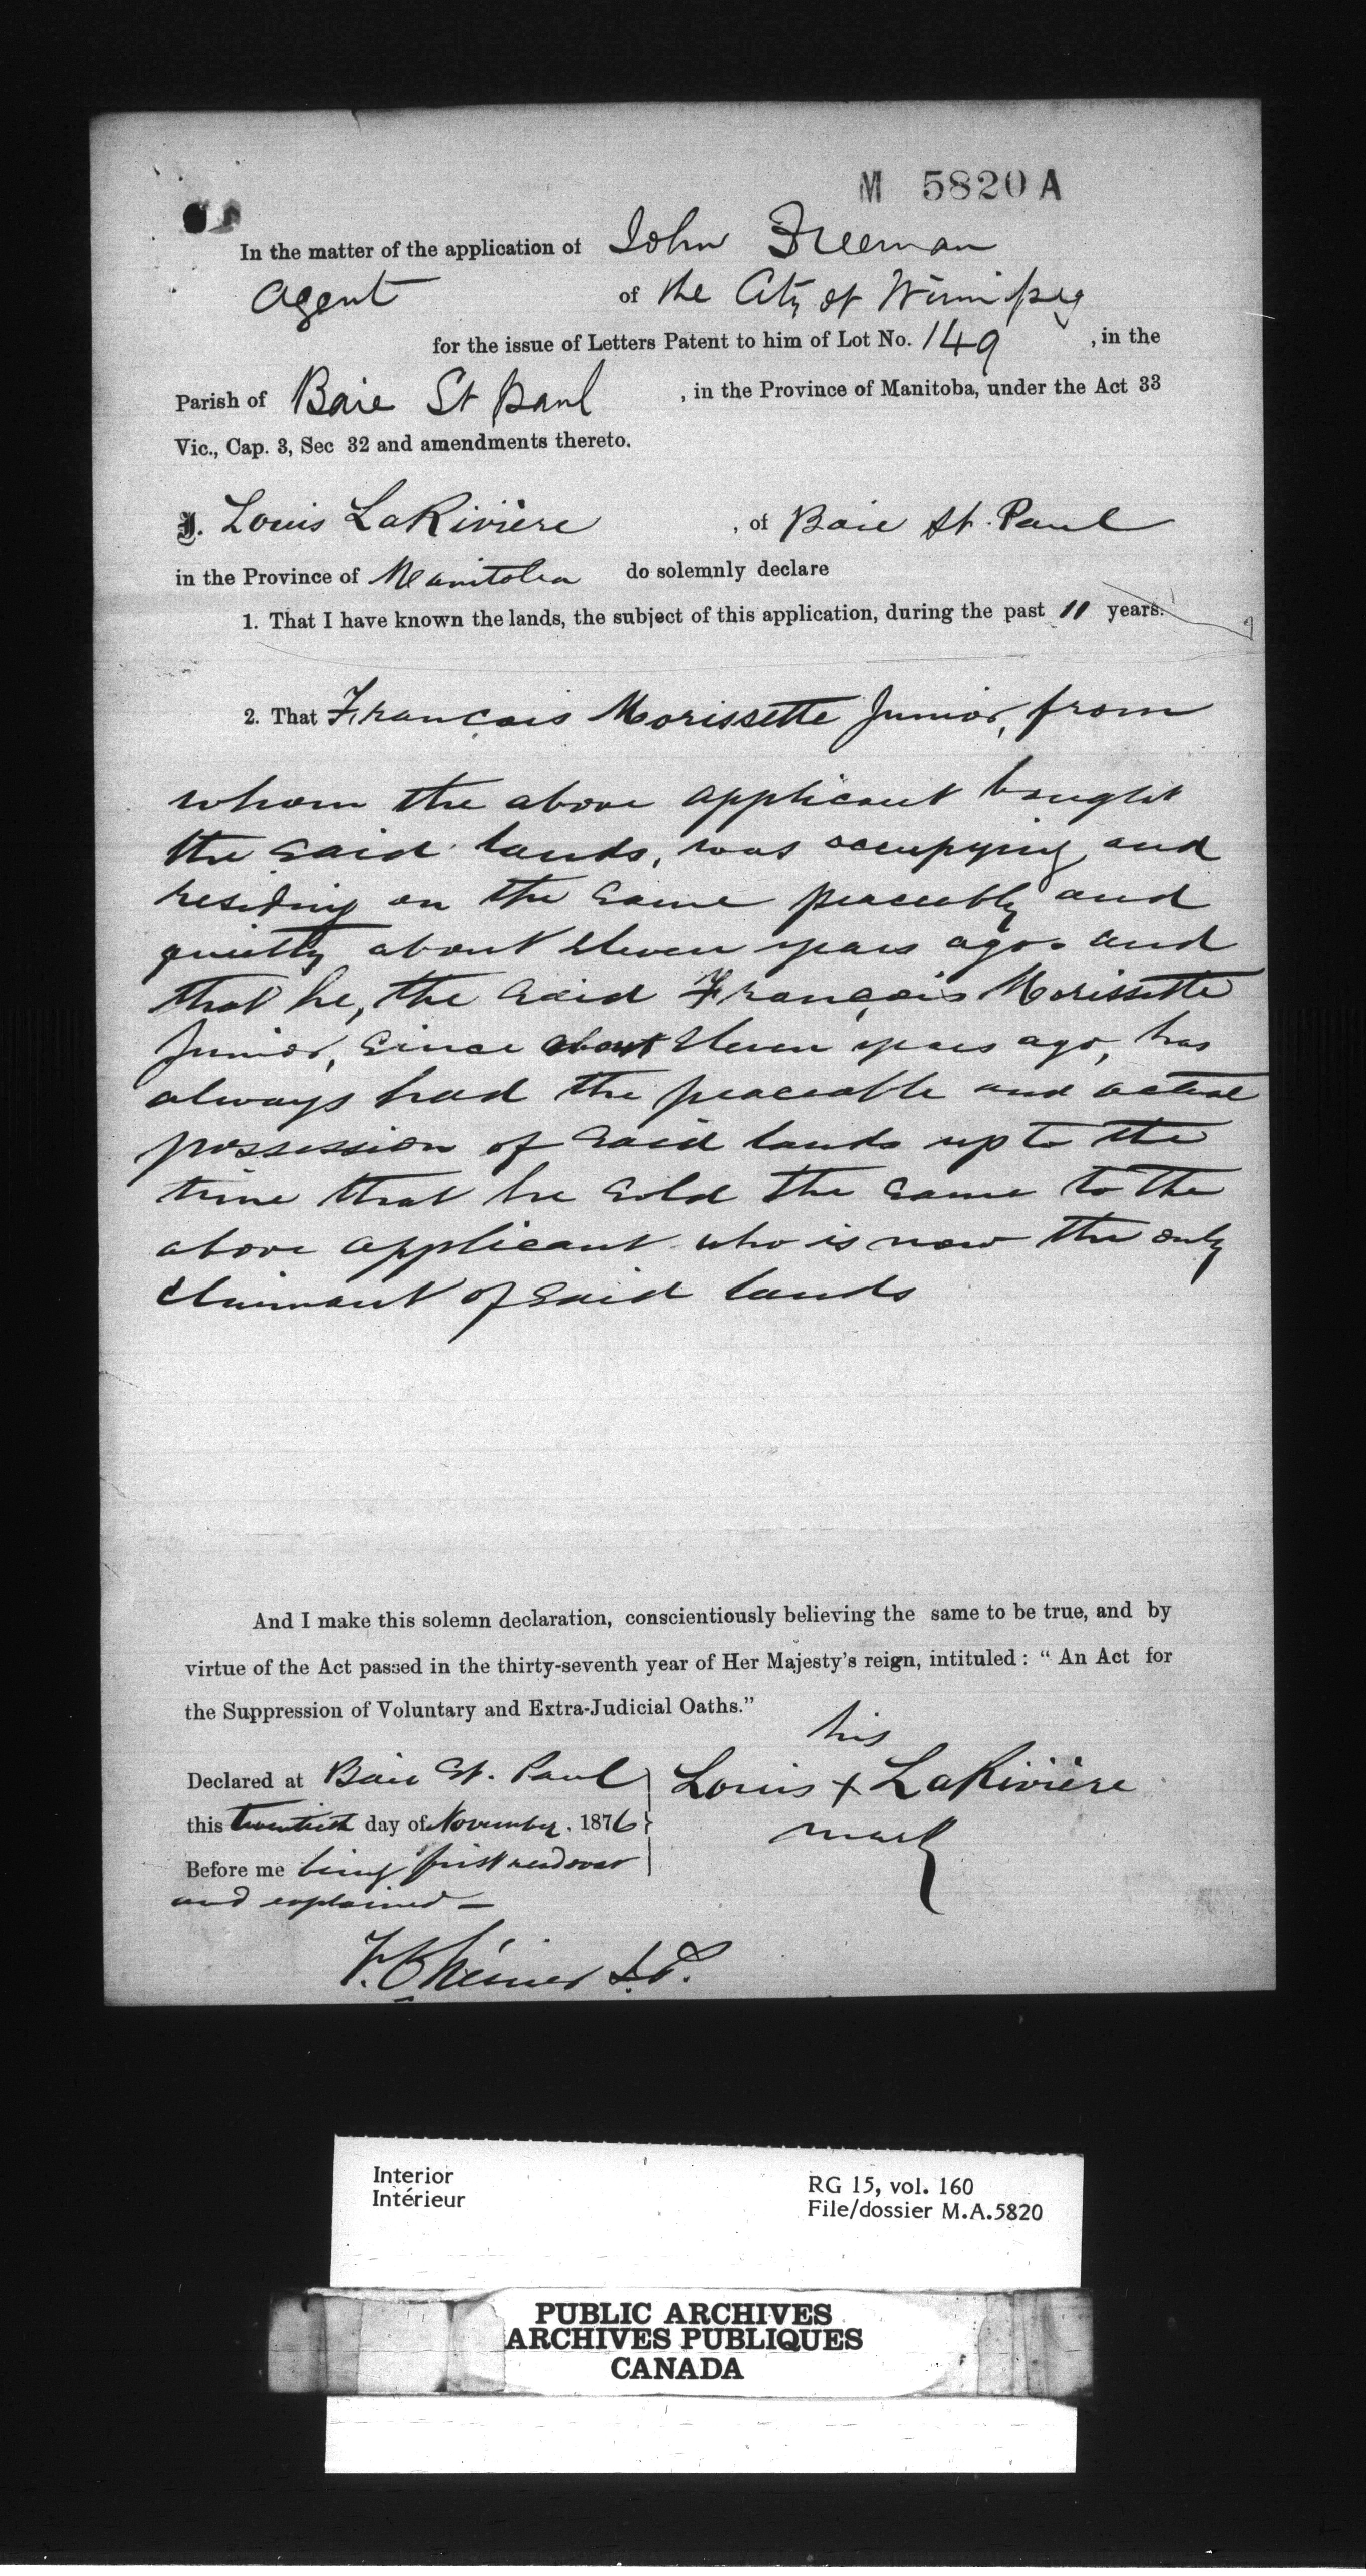 M 5820 A
In the matter of the application of John Freeman
Agent of the City of Winnipeg
for the issue of Letters Patent to him of Lot No. 149, in the
Parish of Baie St Paul, in the Province of Manitoba, under the Act 33
Vic., Cap. 3, Sec 32 and amendments thereto.
I. Louis LaRivière, of Baie St. Paul
in the Province of Manitoba do solemnly declare
1. That I have known the lands, the subject of this application, during the past 11 years.
2. That François Morissette Junior, from
whom the above applicant bought
the said lands, was occupying and
residing on the same peaceably and
quietly about eleven years ago and
that he, the said François Morissette
Junior, since about eleven years ago, has
always had the peaceable and actual
possession of said lands up to the
time that he sold the same to the
above applicant who is now the only
claimant of said lands
And I make this solemn declaration, conscientiously believing the same to be true, and by
virtue of the Act passed in the thirty-seventh year of Her Majesty's reign, intituled: "An Act for
the Suppression of Voluntary and Extra-Judicial Oaths."
his
Declared at Baie St. Paul Louis + LaRivière
this twentieth day of November, 1876
mark
Before me being first read over
and explained —
J.P.
Interior
Intérieur
RG 15, vol. 160
File/dossier M.A.5820
PUBLIC ARCHIVES
ARCHIVES PUBLIQUES
CANADA